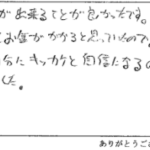 が出来ることが良かったです。
お金がかかると思っていたので、
分にキッカケと自信になるの
した。
ありがとうご